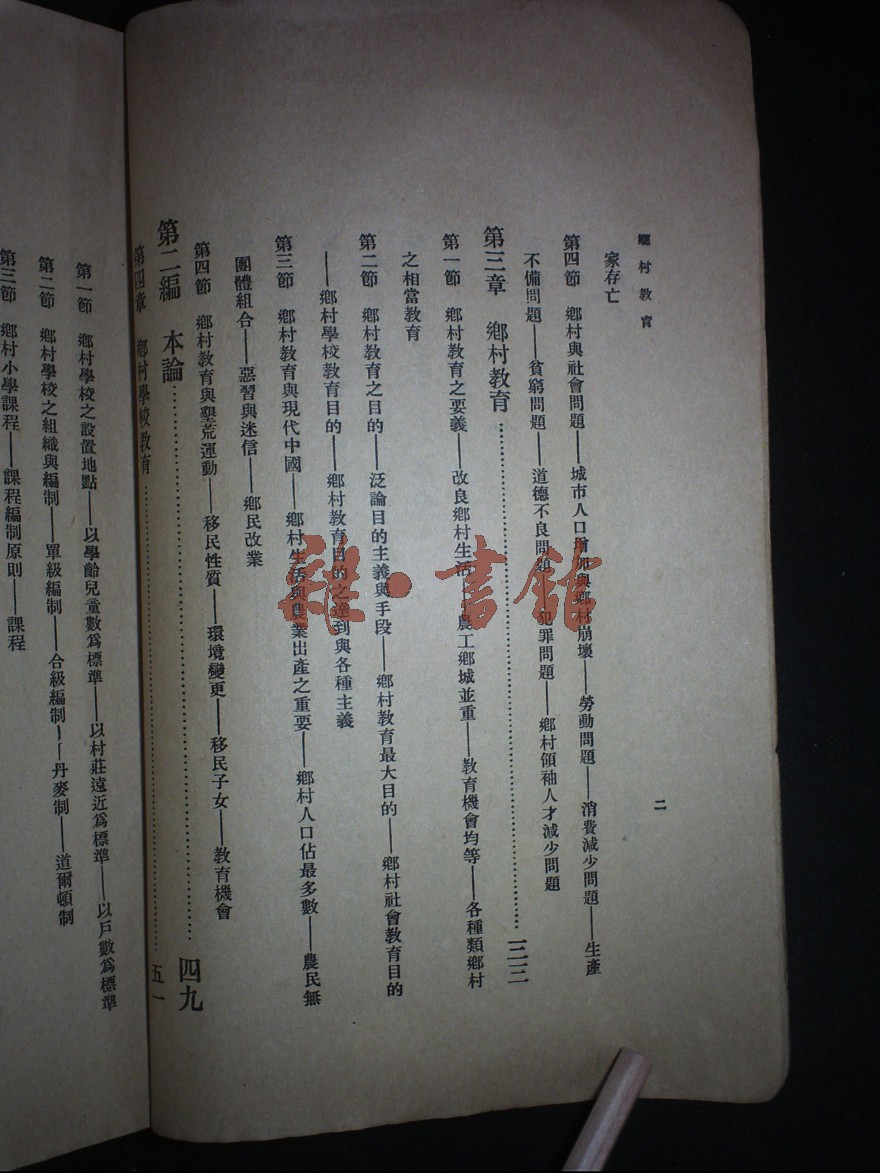 鄉村教育
二
家存亡
第四節　鄉村與社會問題——城市人口增加與鄉村崩壞——勞動問題——消費減少問題——生產
不備問題——貧窮問題——道德不良問題——犯罪問題——鄉村領袖人才減少問題
第三章　鄉村教育……三三
第一節　鄉村教育之要義——改良鄉村生活——農工鄉城並重——教育機會均等——各種類鄉村
之相當教育
第二節　鄉村教育之目的——泛論目的主義與手段——鄉村教育最大目的——鄉村社會教育目的
——鄉村學校教育目的——鄉村教育目的之達到與各種主義
第三節　鄉村教育與現代中國——鄉村生活與農業出產之重要——鄉村人口佔最多數——農民無
團體組合——惡習與迷信——鄉民改業
第四節　鄉村教育與墾荒運動——移民性質——環境變更——移民子女——教育機會
第二編　本論……四九
第四章　鄉村學校教育……五一
第一節　鄉村學校之設置地點——以學齡兒童數為標準——以村莊遠近為標準——以戶數為標準
第二節　鄉村學校之組織與編制——單級編制——合級編制——丹麥制——道爾頓制
第三節　鄉村小學課程——課程編制原則——課程
雜·書館